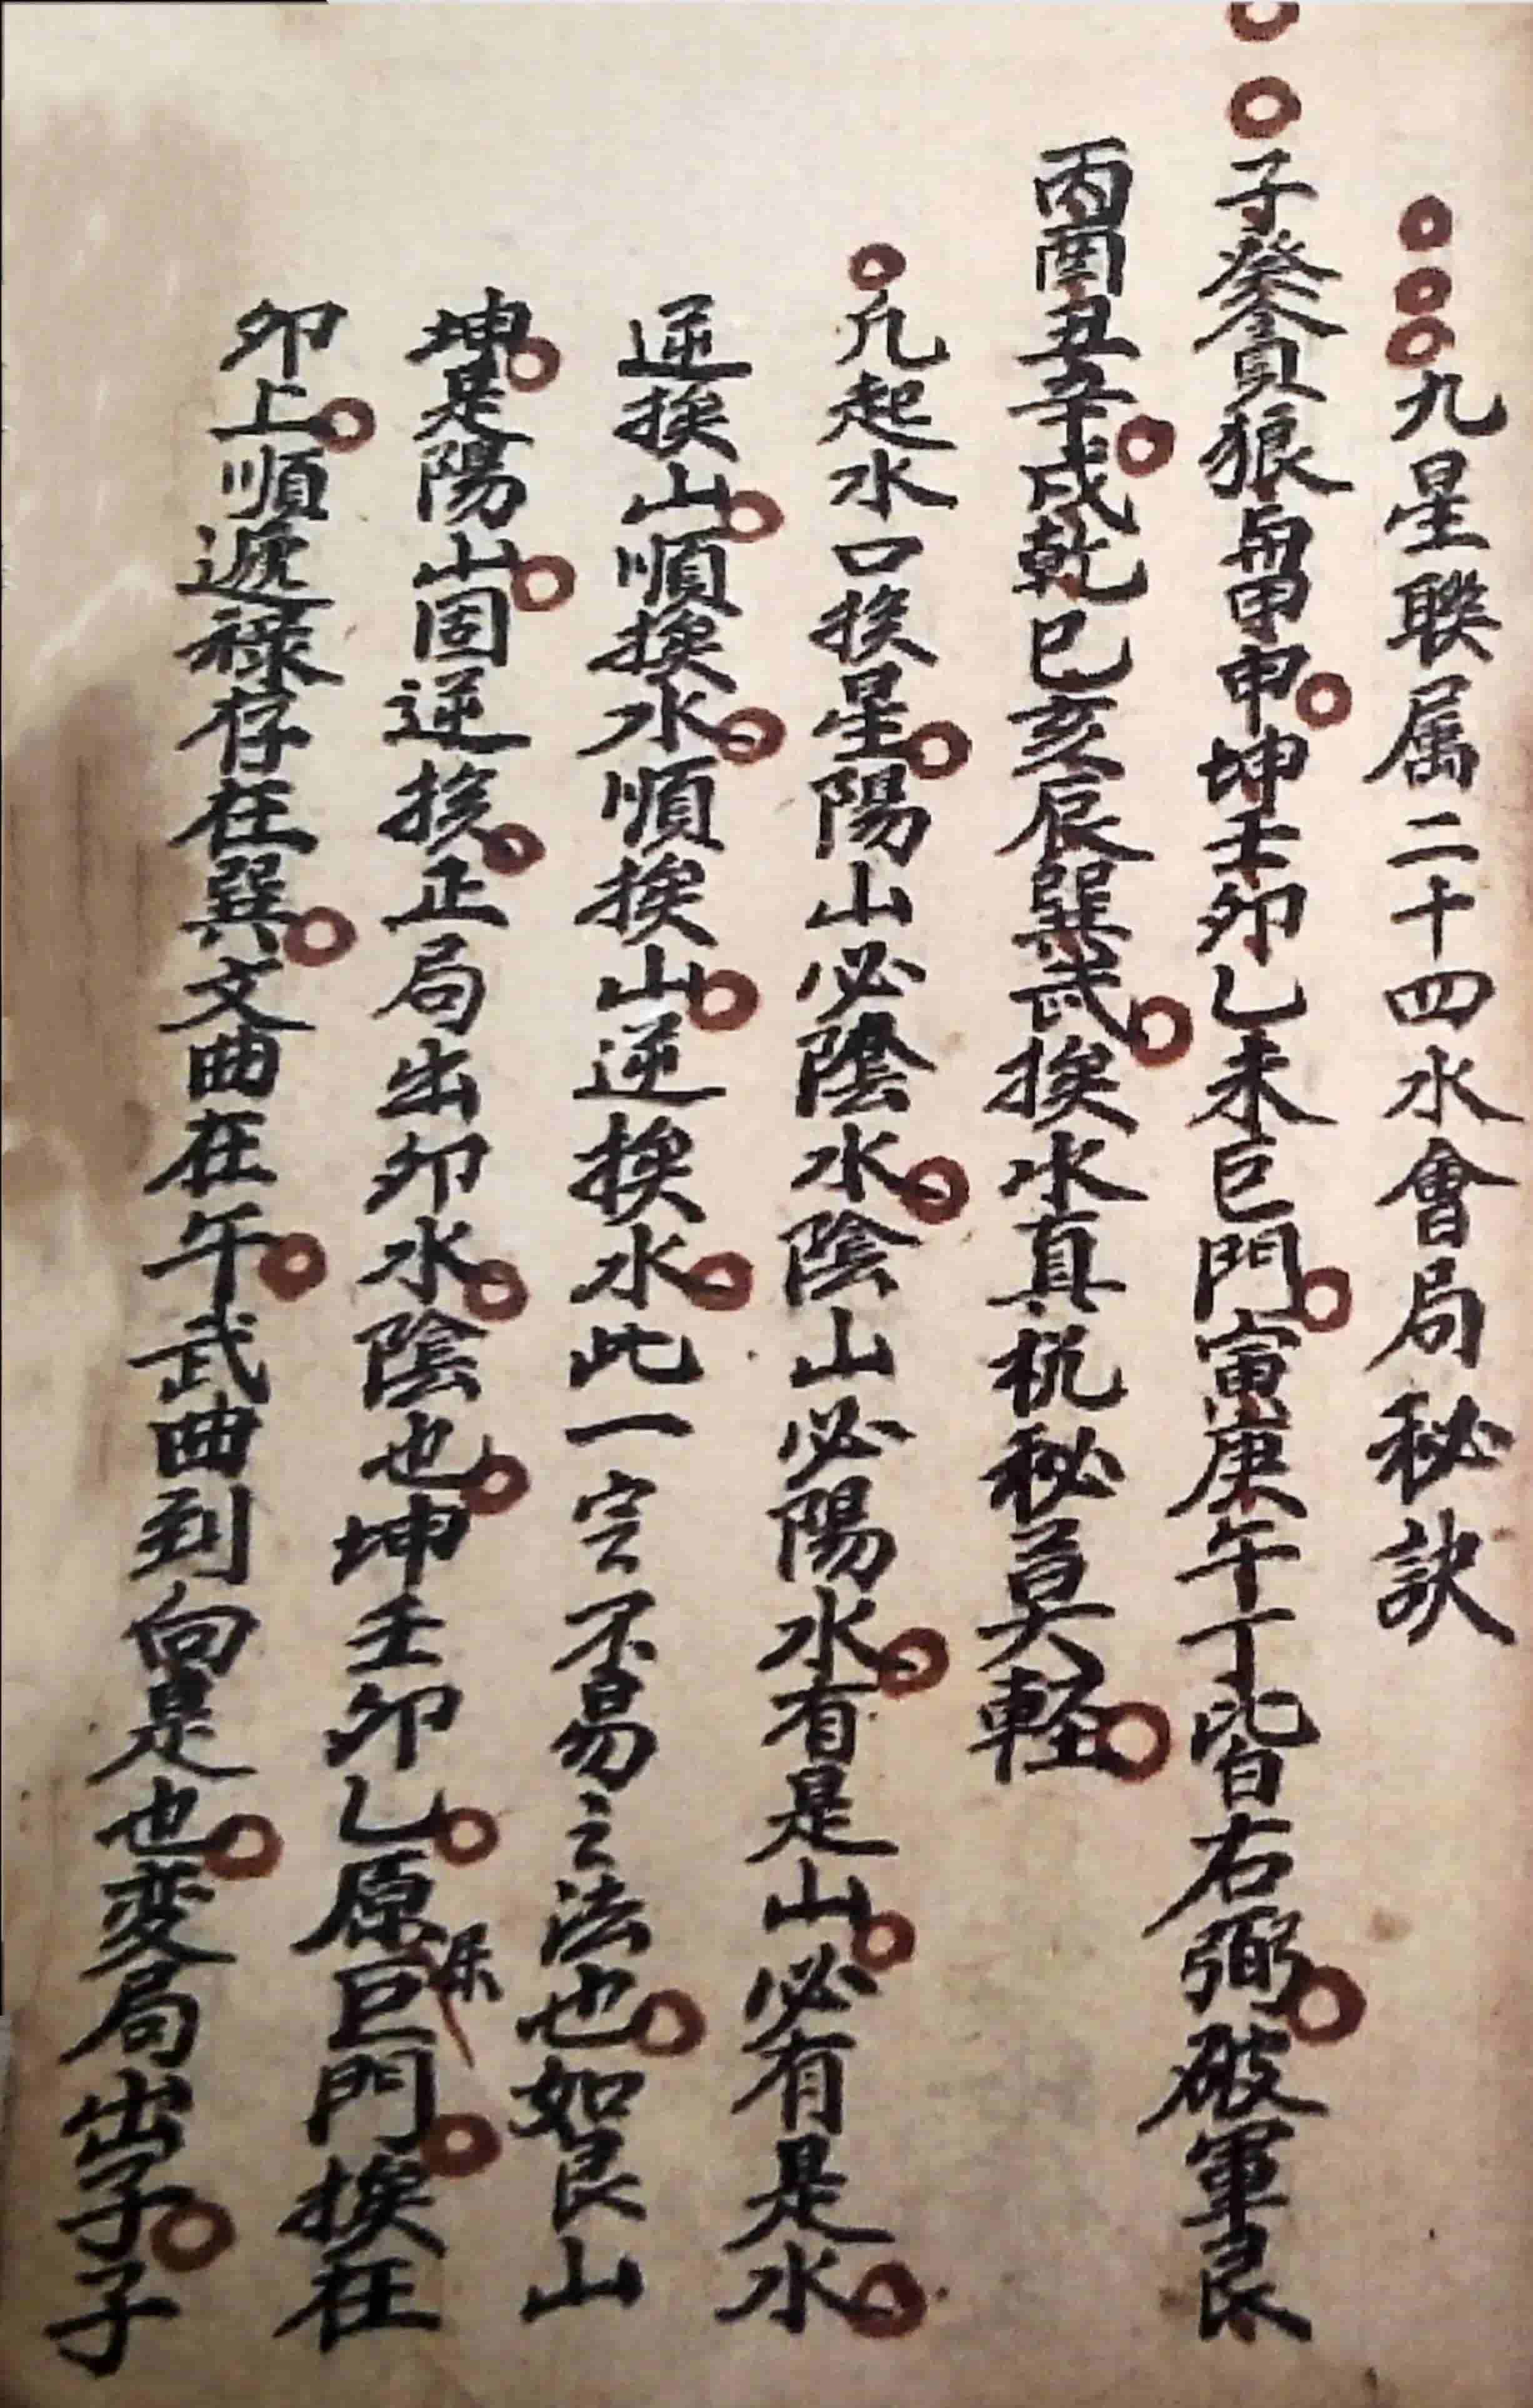 九星聯属二十四水會局秘訣
子癸貪狼與甲申坤壬卯乙未巨門寅庚午丁皆右弼破軍艮
丙酉丑辛戌乾巳亥辰巽武挨水真机秘莫軽
凢起水口挨星陽山必隂水隂山必陽水有是山必有是水
逆挨山順挨水順挨山逆挨水此一定不易之法也如艮山
坤是陽山固逆挨正局出卯水隂也坤壬卯乙原係巨門挨在
卯上順遞祿存在巽文曲在午武曲到向是也変局出子子